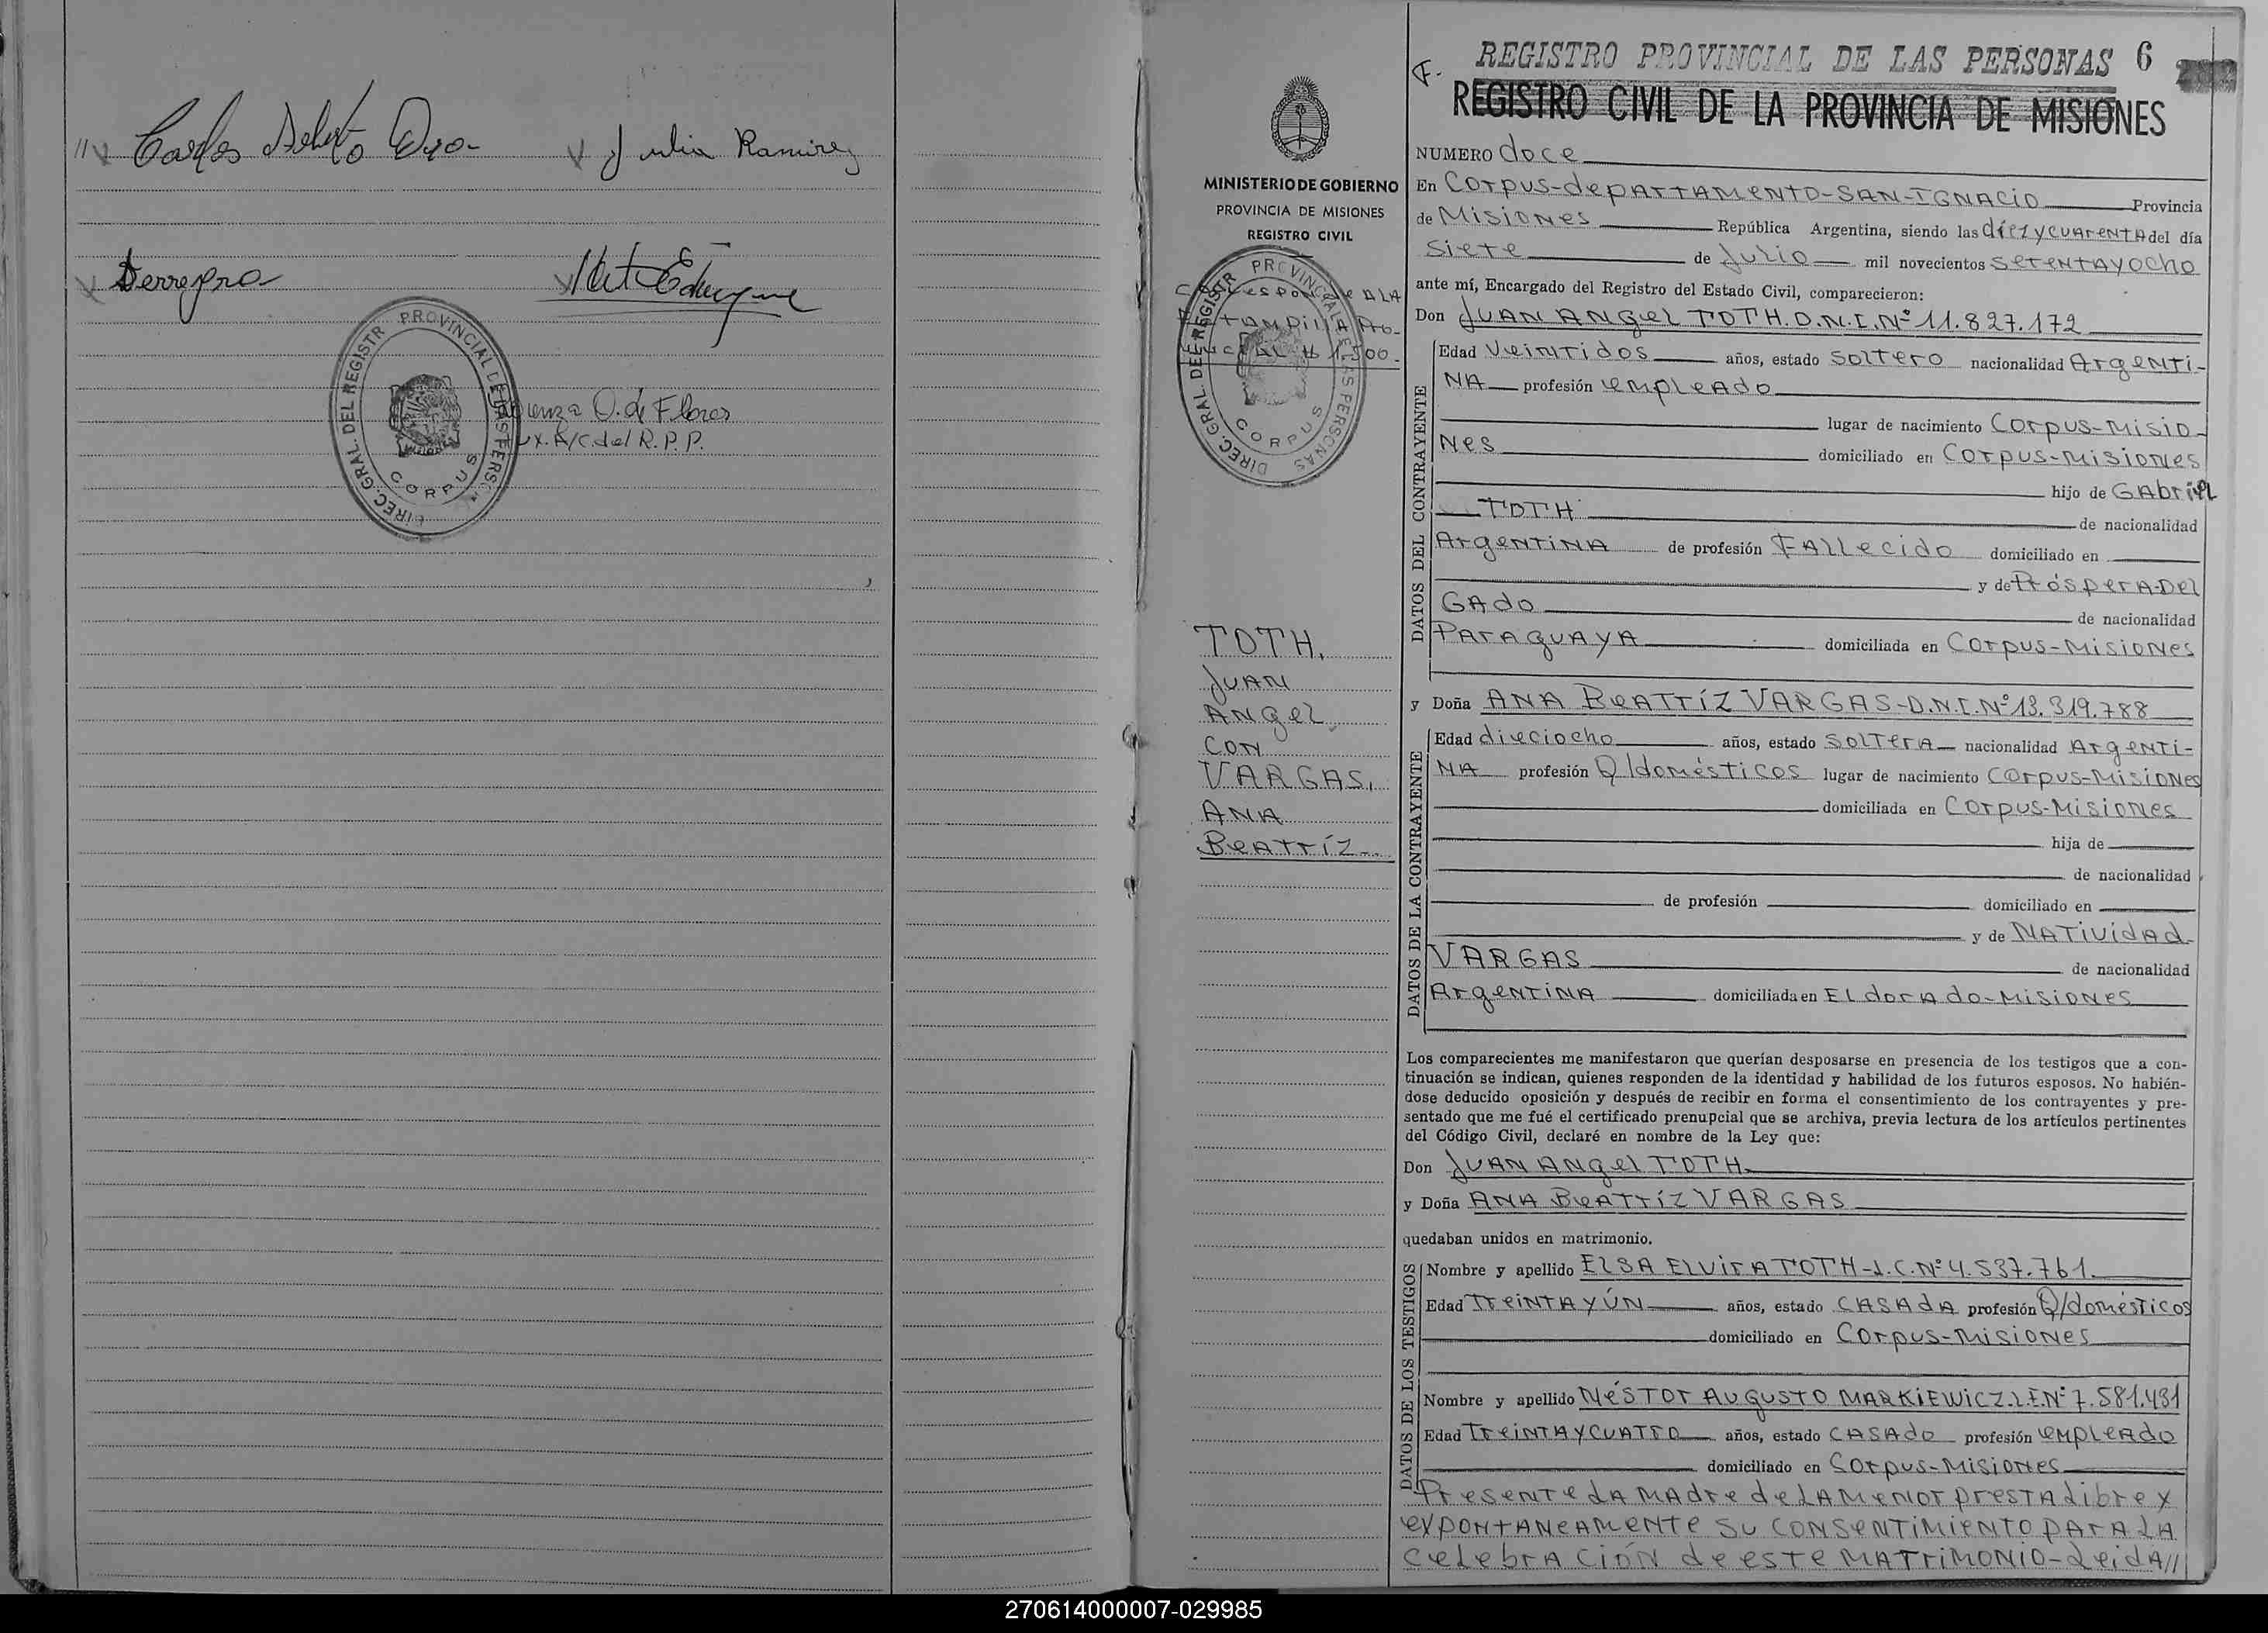 Carlos Duo Julia Ramirez
PROVINCIAL DE LAS PERSONAS
DIREC. GRAL. DEL REGISTR
CORPUS
O. de Flores
A/C. del R.P.P.
REGISTRO PROVINCIAL DE LAS PERSONAS 6
REGISTRO CIVIL DE LA PROVINCIA DE MISIONES
MINISTERIO DE GOBIERNO
PROVINCIA DE MISIONES
REGISTRO CIVIL
DIREC. GRAL. DEL REGISTR PROVINCIAL DE LAS PERSONAS
CORPUS
Corresponde A LA
estampilla
1.500.
TOTH,
JUAN
ANgel
CON
VARGAS,
ANA
BeATríz
NUMERO doce
En Corpus-depARTAMENTO-SAN-IGNACIO Provincia
de MISIONES República Argentina, siendo las diez y cuarenta del día
siete de Julio mil novecientos setentayocho
ante mí, Encargado del Registro del Estado Civil, comparecieron:
Don JUAN ANgel TOTH. D.N.I. Nº 11.827.172
DATOS DEL CONTRAYENTE
Edad veintidos años, estado soltero nacionalidad Argenti-
NA profesión empleado
lugar de nacimiento Corpus-Misio-
nes domiciliado en Corpus-Misiones
hijo de GAbriel
TOTH de nacionalidad
Argentina de profesión Fallecido domiciliado en
y de Próspera Del
GAdo de nacionalidad
PARAguAyA domiciliada en Corpus-Misiones
y Doña ANA BeATríz VARGAS-D.N.I. Nº 13.319.788
DATOS DE LA CONTRAYENTE
Edad dieciocho años, estado soltera nacionalidad Argenti-
NA profesión Q/domésticos lugar de nacimiento Corpus-Misiones
domiciliada en Corpus-Misiones
hija de
de nacionalidad
de profesión domiciliado en
y de NATividAd
VARGAS de nacionalidad
Argentina domiciliada en Eldorado-Misiones
Los comparecientes me manifestaron que querían desposarse en presencia de los testigos que a con-
tinuación se indican, quienes responden de la identidad y habilidad de los futuros esposos. No habién-
dose deducido oposición y después de recibir en forma el consentimiento de los contrayentes y pre-
sentado que me fué el certificado prenupcial que se archiva, previa lectura de los artículos pertinentes
del Código Civil, declaré en nombre de la Ley que:
Don JUAN ANgel TOTH
y Doña ANA BeATríz VARGAS
quedaban unidos en matrimonio.
DATOS DE LOS TESTIGOS
Nombre y apellido ELSA ELVIRA TOTH-L.C. Nº 4.537.761.
Edad treintayún años, estado casada profesión Q/domésticos
domiciliado en Corpus-Misiones
Nombre y apellido Néstor Augusto MARKIEWICZ. L.E. Nº 7.581.431
Edad treintaycuatro años, estado casado profesión empleado
domiciliado en Corpus-Misiones
Presente la madre de la menor presta libre y
expontaneamente su consentimiento para la
celebración de este matrimonio-Leida//
270614000007-029985